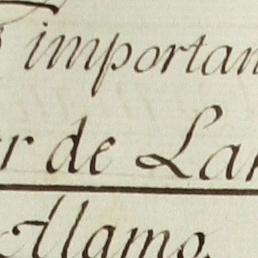 importan
r de Lar
Alamo.